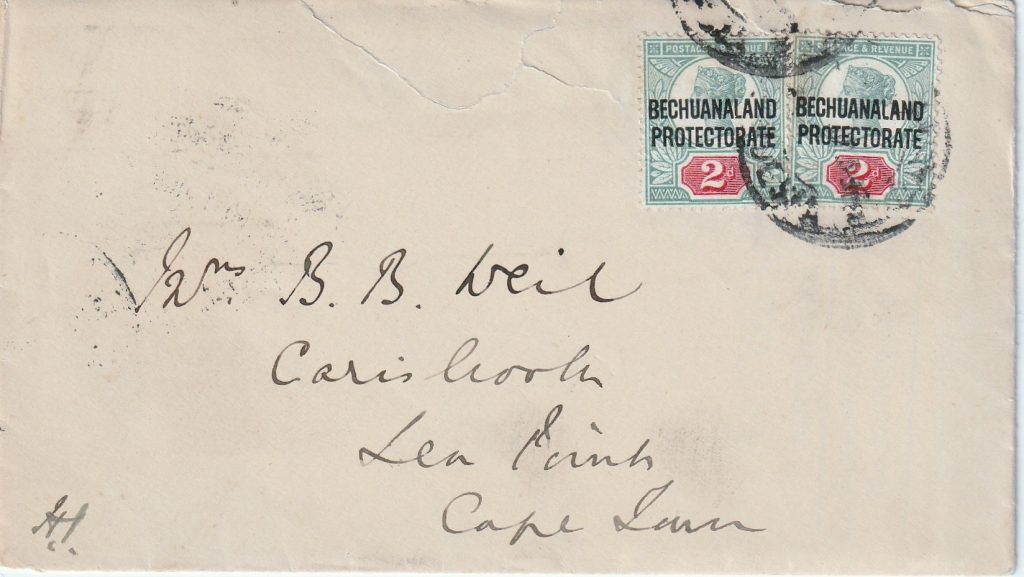 POSTAGE & REVENUE
BECHUANALAND
PROTECTORATE
2d
BECHUANALAND
PROTECTORATE
2d
Mrs B. B. Weil
Carisbrook
Sea Point
Cape Town